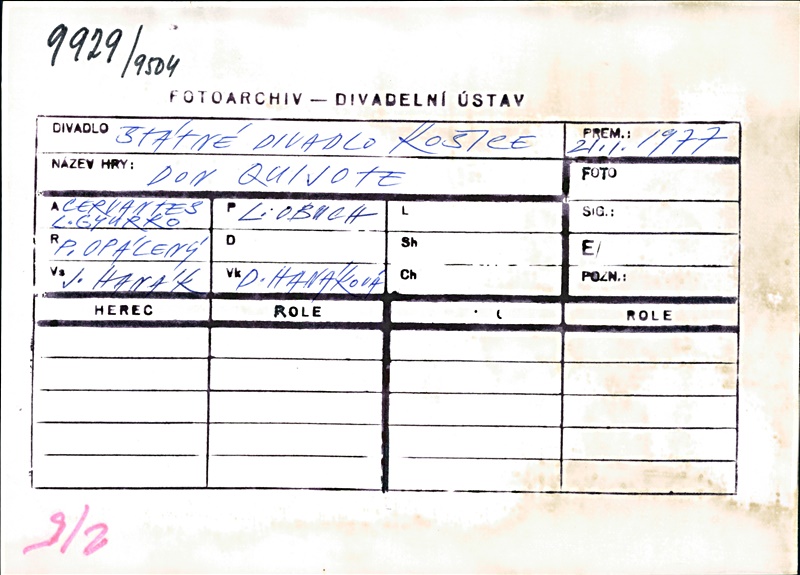 9929/9504
FOTOARCHIV — DIVADELNÍ ÚSTAV
DIVADLO ŠTÁTNÉ DIVADLO KOŠICE PREM.: 21.1. 1977
NÁZEV HRY: DON QUIJOTE FOTO
A CERVANTES L. GYURKO P L. OBUCH L SIG.:
R P. OPÁLENÝ D Sh E/
Vs J. HANÁK Vk D. HANÁKOVÁ Ch POZN.:
HEREC ROLE ROLE
9/2